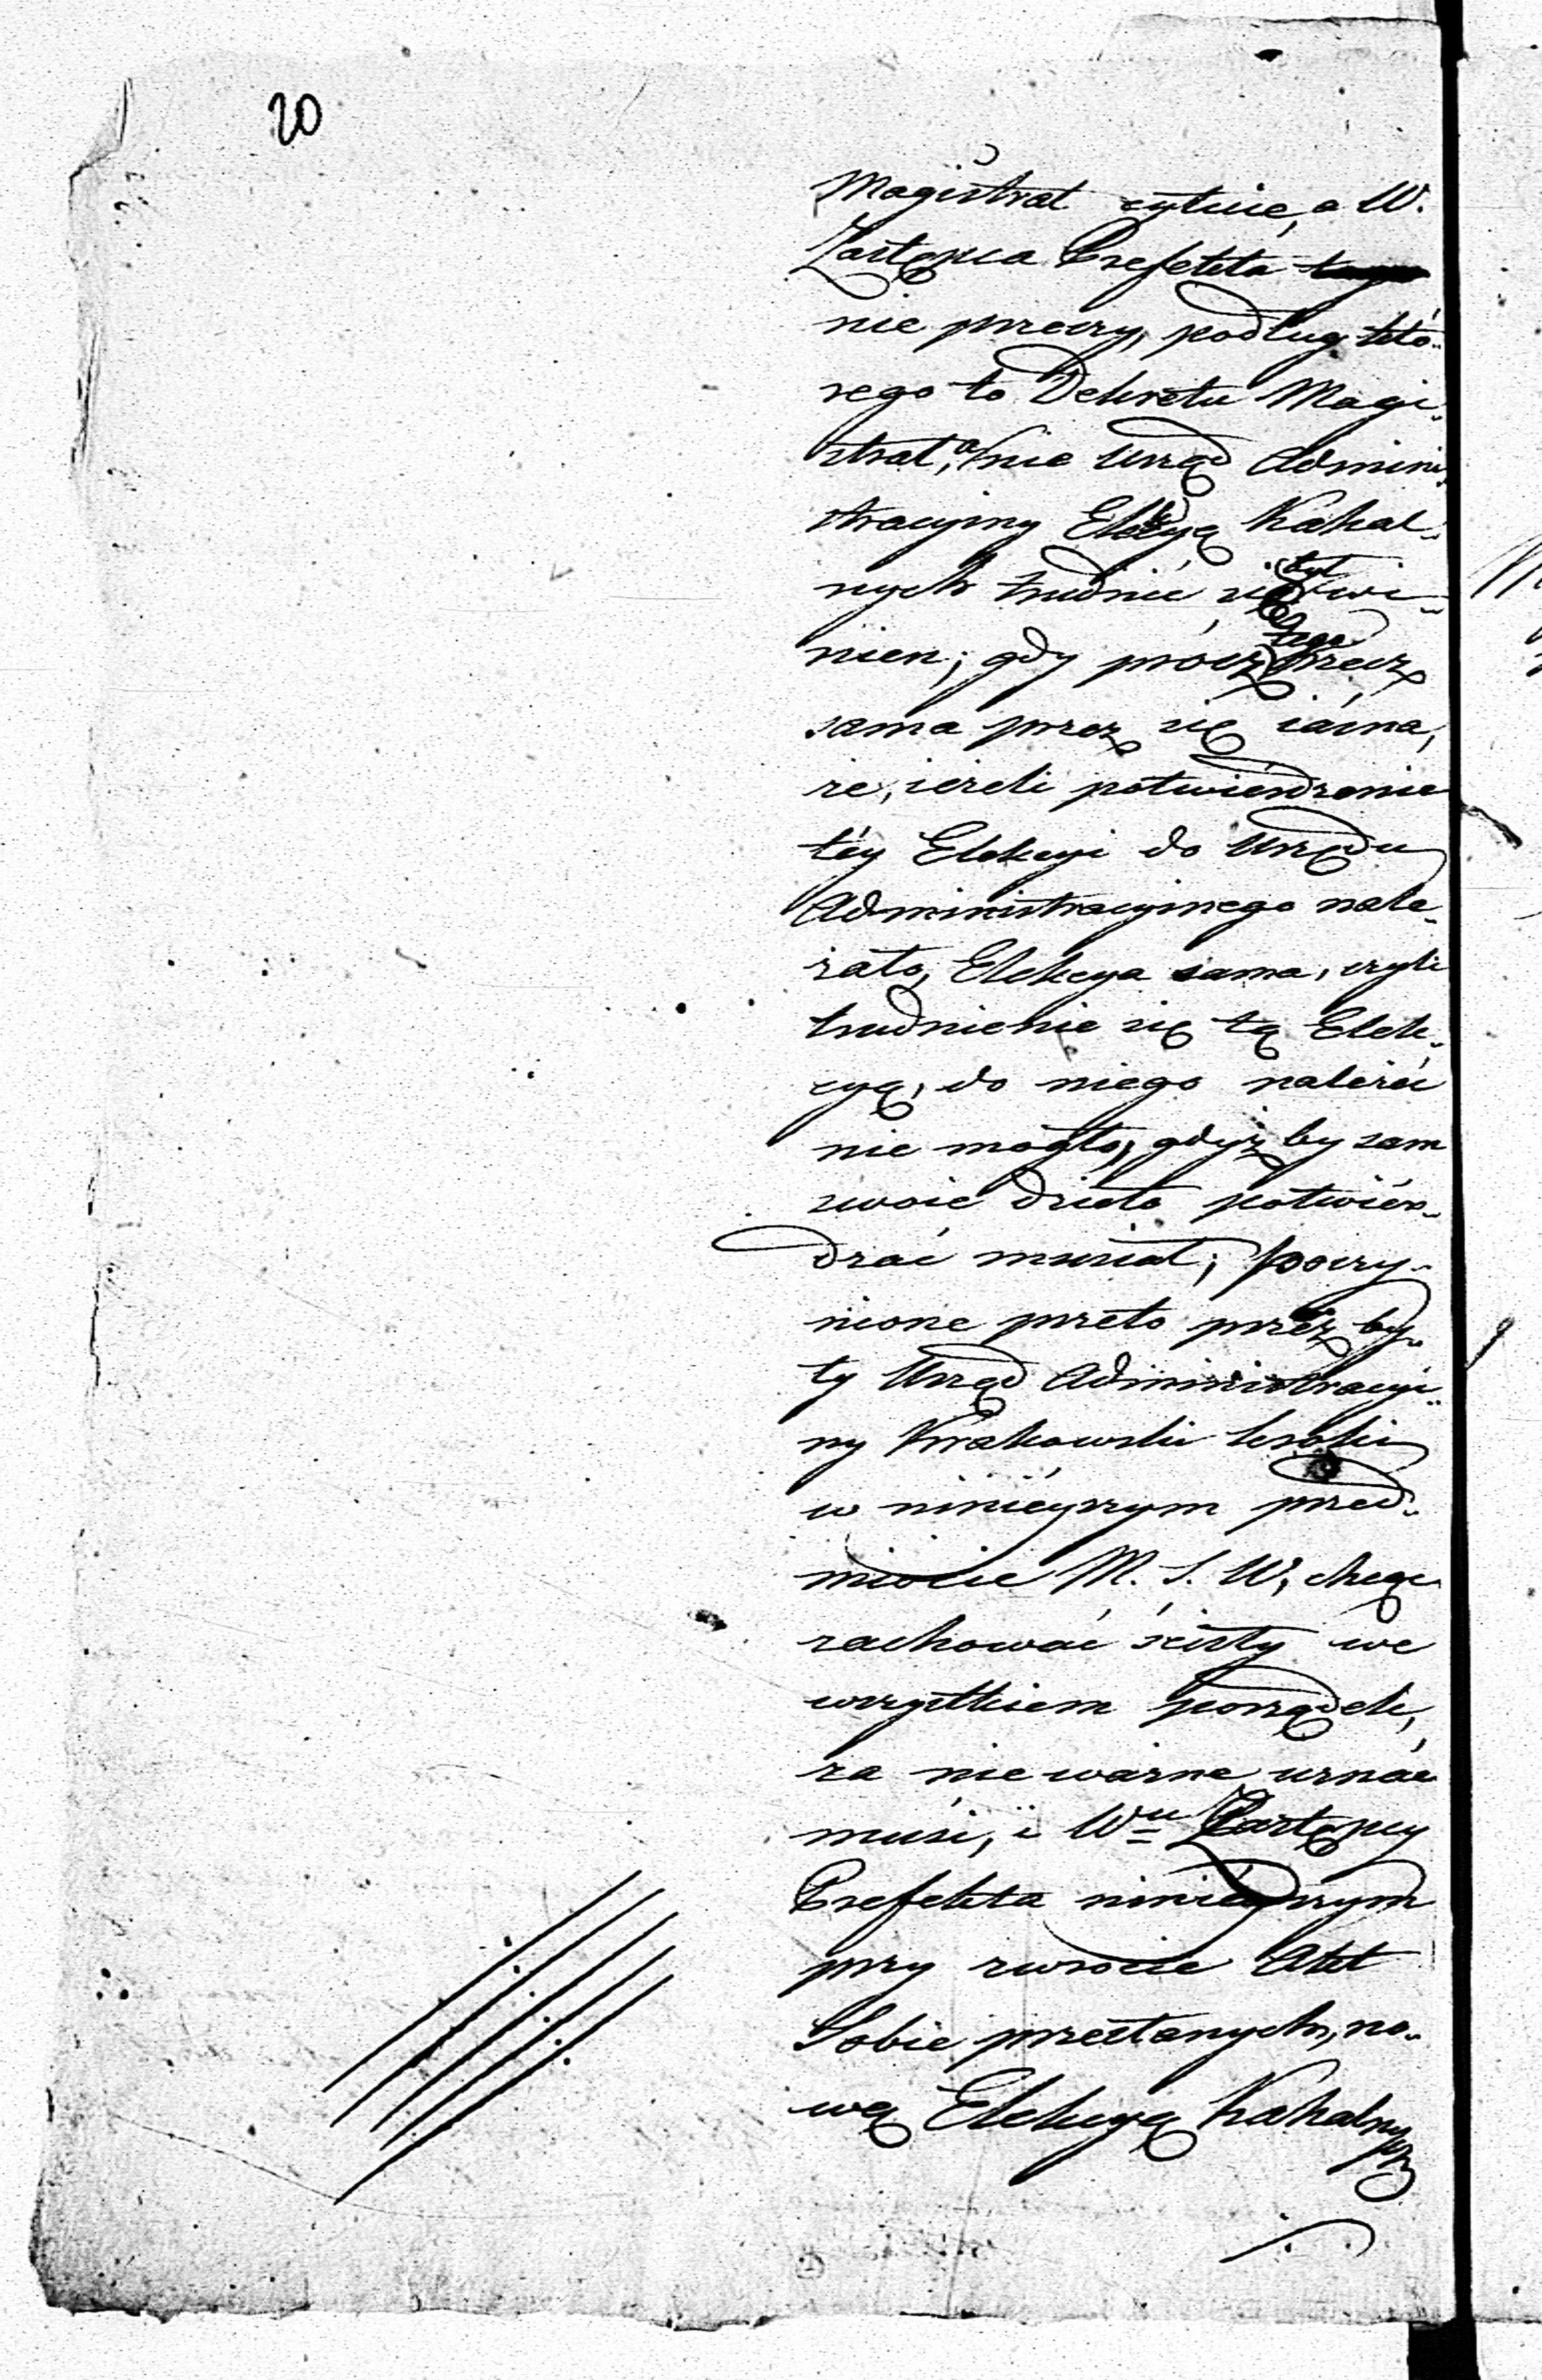 20
Magistrat cytuie, a W.
Zastępca Prefekta
nie przeczy, podług któ-
rego to Dekretu Magi-
strat, a nie Urząd Admini-
stracyiny Elekcyą Kahal-
nych trudnić się był wi-
nien; gdy prócz tego rzecz
sama przez się iaśna,
że, ieżeli potwierdzenie
téy Elekcyi do Urzędu
Administracyinego nale-
żało, Elekcya sama, czyli
trudnienie się tą Elek-
cyą, do niego należeć
nie mogło, gdyż by sam
swoie dzieło potwier-
dzać musiał; poczy-
nione przeto przez by-
ły Urząd Administracyi-
ny Krakowski kroki
w ninieyszym przed-
miocie M. S. W, chcąc
zachować ścisły we
wszystkiem porządek,
za nie ważne uznać
musi, i Wu Zastępcy
Prefekta ninieyszym
przy zwrocie Akt
Sobie przesłanych, no-
wą Elekcyą Kahalnych